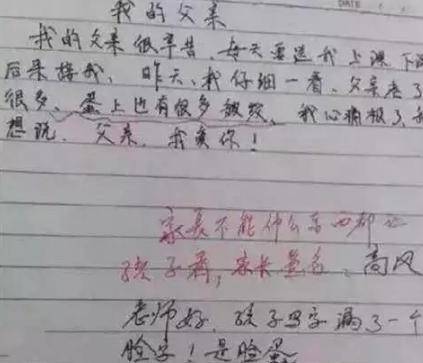 我的父亲
我的父亲很辛苦、每天要送我上课下课
后来接我、昨天、我仔细一看、父亲老了
很多、蛋上也有很多皱纹、我心痛极了、我
想说、父亲、我爱你!
家长不能什么东西都让
孩子看,家长签名、高风
老师好、孩子写字漏了一个
脸字!是脸蛋